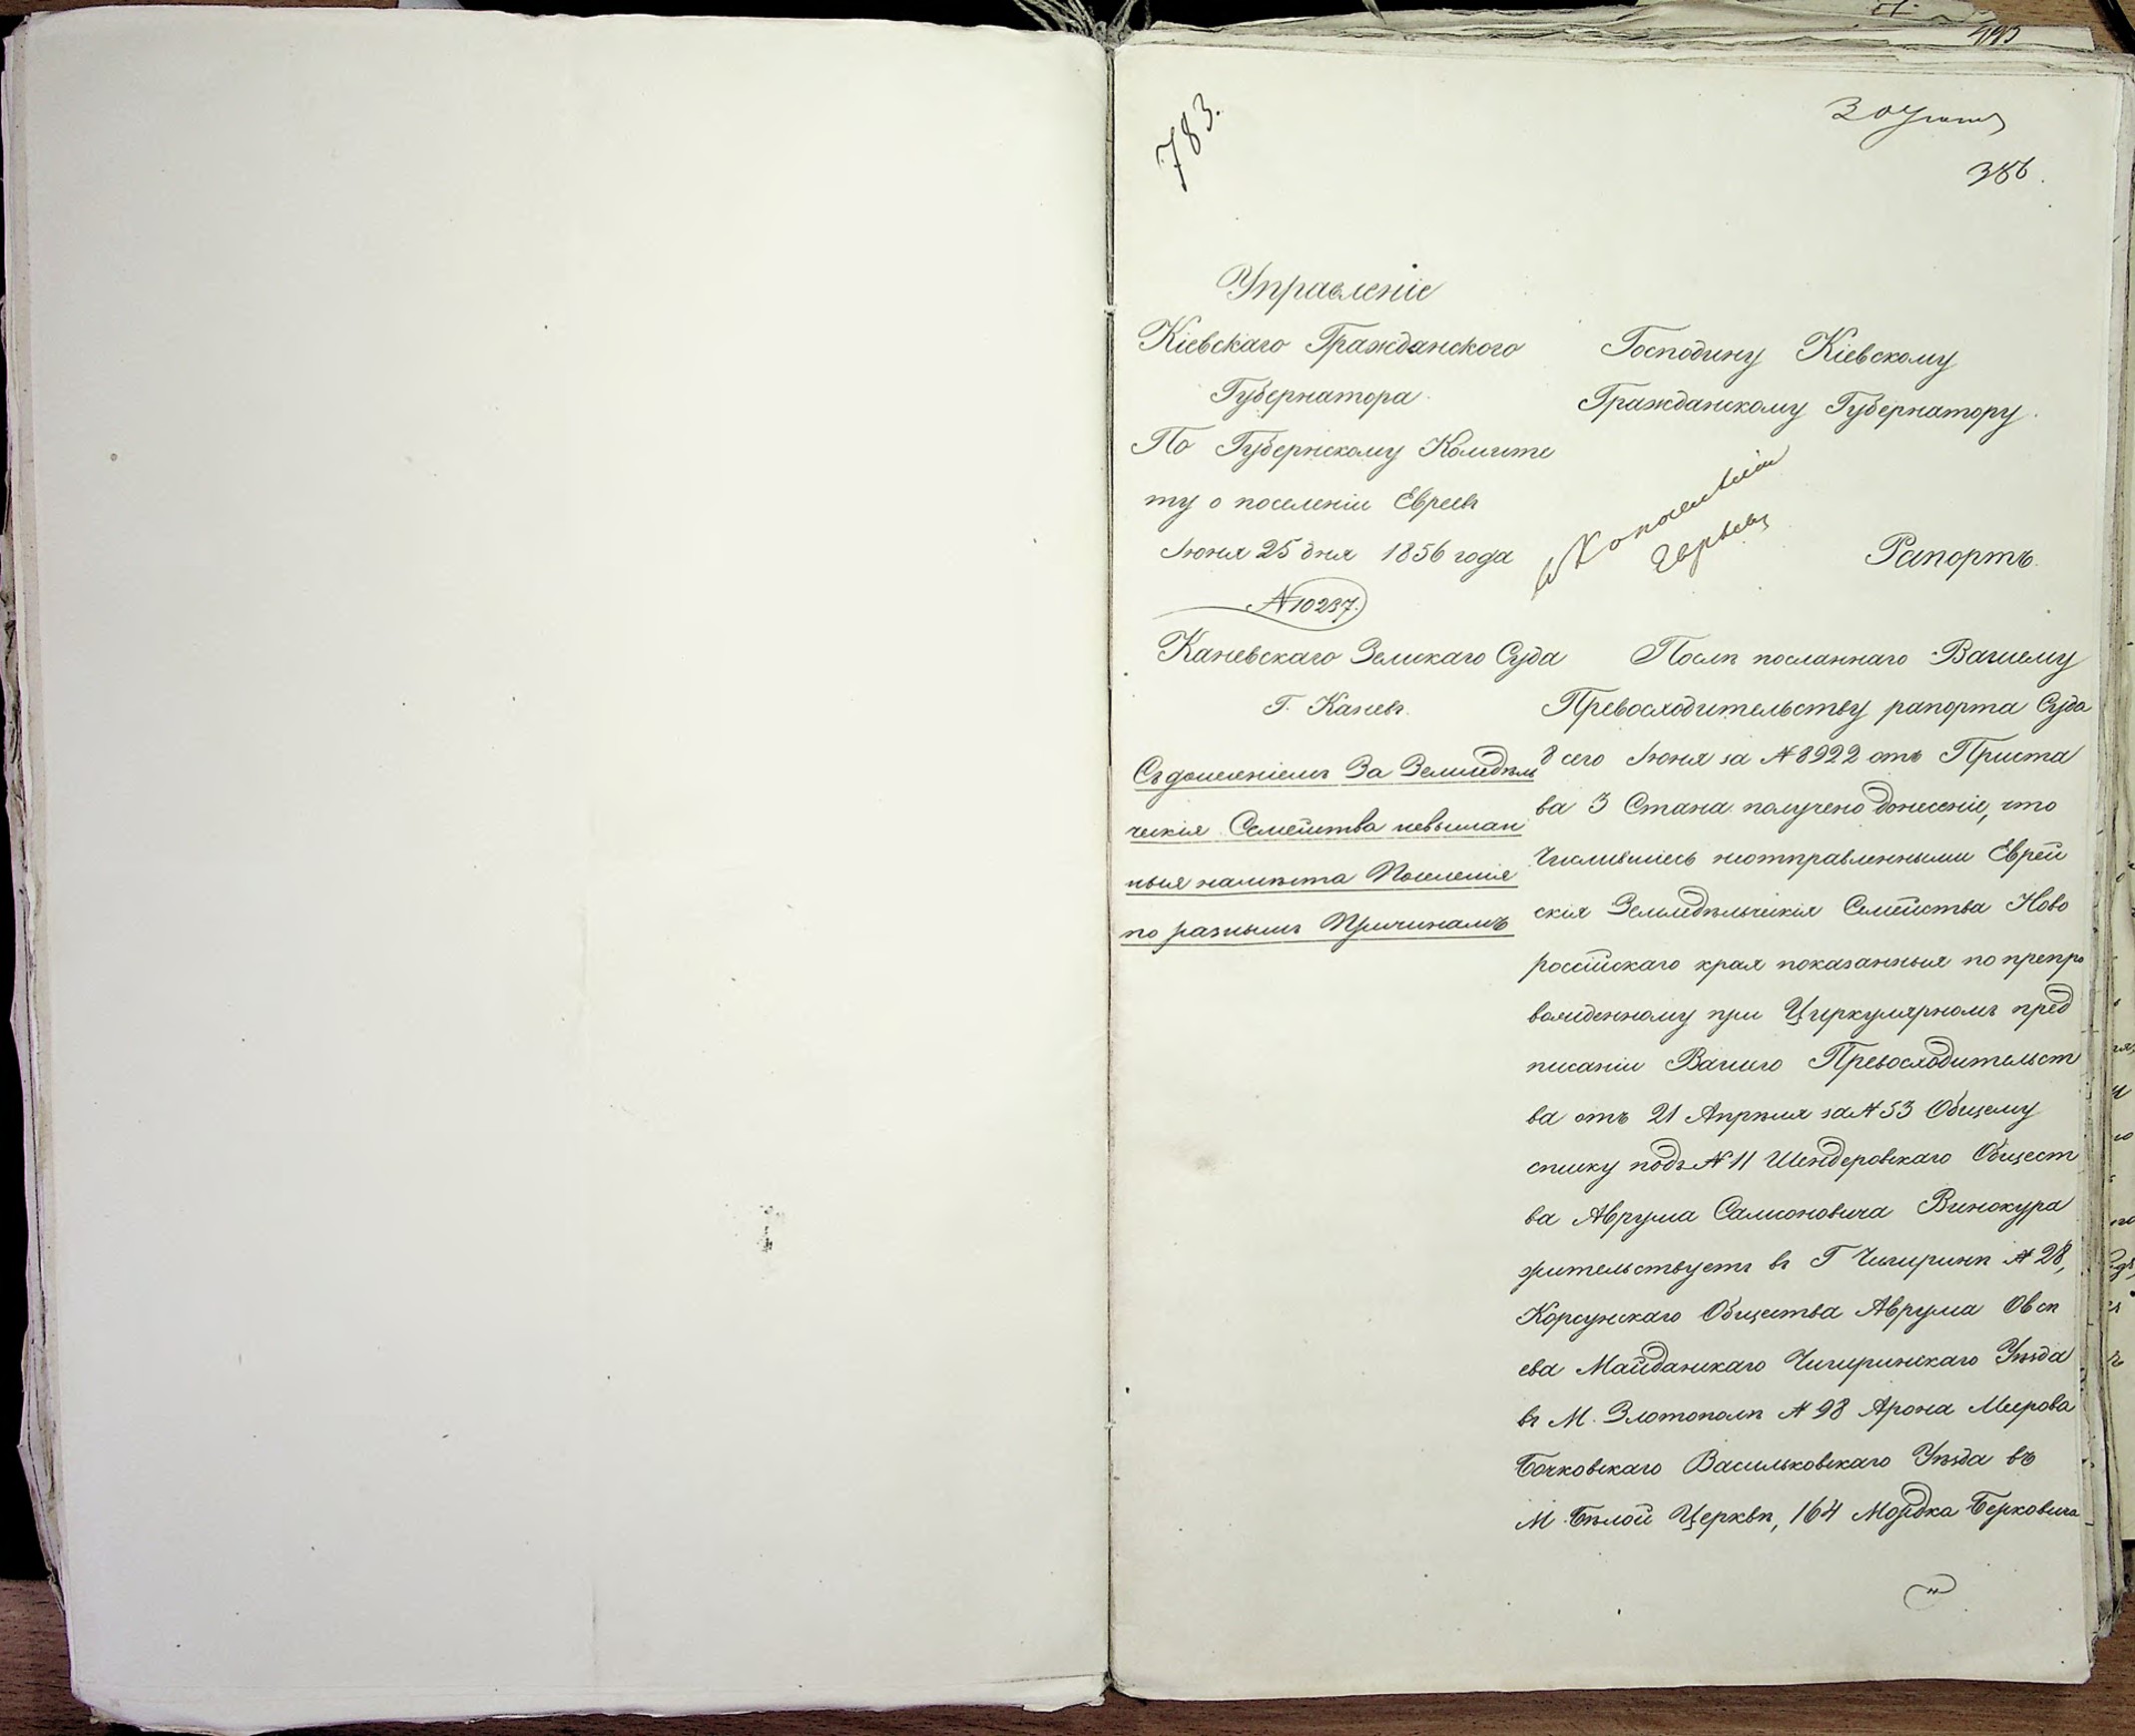 783.
30 Юня
386.
Управленіе
Кіевскаго Гражданского
Губернатора.
По Губернскому Комите
ту о поселеніи Евреевъ
Июня 25 дня 1856 года
№ 10237.
Каневскаго Земскаго Суда
Г. Каневъ.
Съ донесеніемъ За Земледѣль
ческія Семейства невыслан
ныя на мѣста Поселенія
по разнымъ Причинамъ
Господину Кіевскому
Гражданскому Губернатору.
Рапортъ.
Послѣ посланнаго Вашему
Превосходительству рапорта Суда
8 сего Июня за № 8922 отъ Приста
ва 3 Стана получено донесеніе, что
Числившіесь неотправленными Еврей
скія Земледѣльческія Семейства Ново
россійскаго края показанныя по препро
вожденному при Циркулярномъ пред
писаніи Вашего Превосходительст
ва отъ 21 Апрѣля за № 53 Общему
списку подъ № 11 Шендеровскаго Общест
ва Аврума Самсоновича Винокура
жительствуетъ въ Г Чигиринѣ № 28,
Корсунскаго Общества Аврума Овсѣ
ева Майданскаго Чигиринскаго Уѣзда
въ М. Златополѣ № 98 Арона Меерова
Бочковскаго Васильковскаго Уѣзда въ
М. Бѣлой Церквѣ, 164 Мордка Берковича